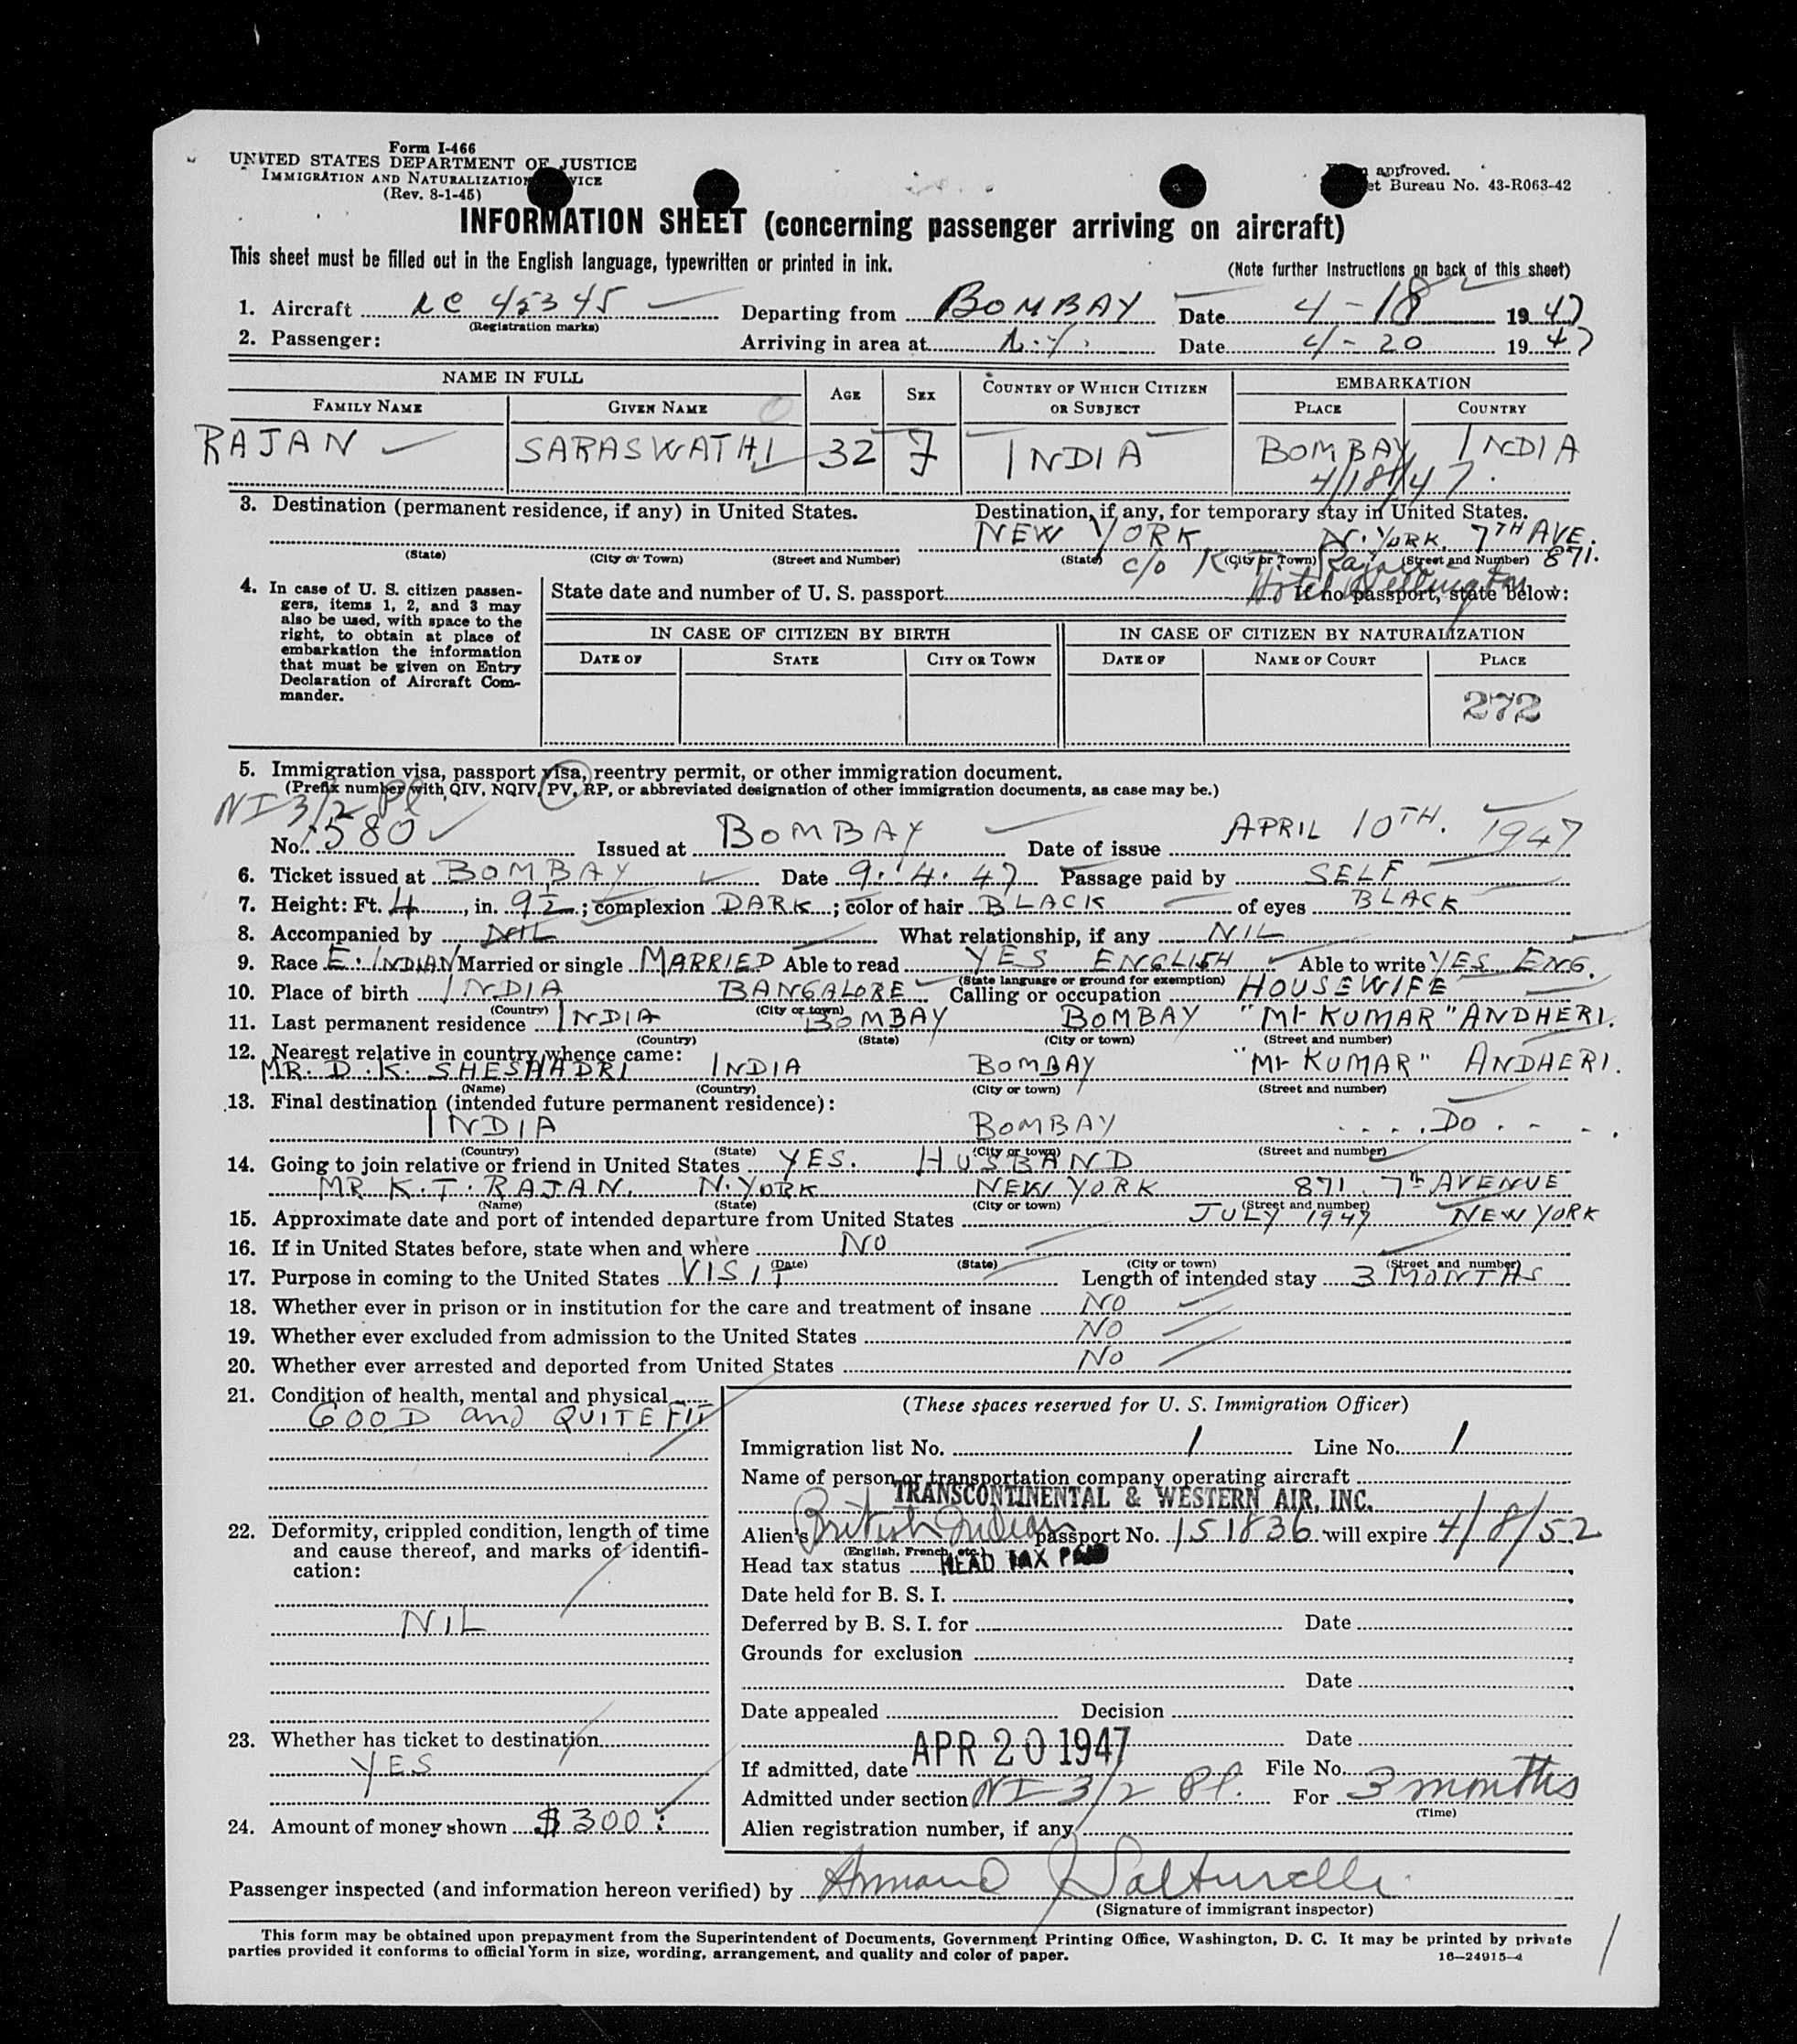 Form I-466
UNITED STATES DEPARTMENT OF JUSTICE
IMMIGRATION AND NATURALIZATION VICE
(Rev. 8-1-45)
approved.
et Bureau No. 43-R063-42
INFORMATION SHEET (concerning passenger arriving on aircraft)
This sheet must be filled out in the English language, typewritten or printed in ink.
(Note further instructions on back of this sheet)
1. Aircraft NC 45345 Departing from BOMBAY Date 4-18 1947
(Registration marks)
2. Passenger: Arriving in area at N.Y. Date 4-20 1947
NAME IN FULL AGE SEX COUNTRY OF WHICH CITIZEN OR SUBJECT EMBARKATION
FAMILY NAME GIVEN NAME PLACE COUNTRY
RAJAN SARASWATHI 32 F INDIA BOMBAY INDIA
4/18/47
3. Destination (permanent residence, if any) in United States. Destination, if any, for temporary stay in United States.
NEW YORK N. YORK. 7TH AVE. 871.
(State) (City or Town) (Street and Number) (State) (City or Town) (Street and Number)
c/o K T Rajan
Hotel Wellington
4. In case of U. S. citizen passengers, items 1, 2, and 3 may also be used, with space to the right, to obtain at place of embarkation the information that must be given on Entry Declaration of Aircraft Commander.
State date and number of U. S. passport If no passport, state below:
IN CASE OF CITIZEN BY BIRTH IN CASE OF CITIZEN BY NATURALIZATION
DATE OF STATE CITY OR TOWN DATE OF NAME OF COURT PLACE
272
5. Immigration visa, passport visa, reentry permit, or other immigration document.
(Prefix number with QIV, NQIV, PV, RP, or abbreviated designation of other immigration documents, as case may be.)
NI 3/2 Pl
No. 1580 Issued at BOMBAY Date of issue APRIL 10TH. 1947
6. Ticket issued at BOMBAY Date 9.4.47 Passage paid by SELF
7. Height: Ft. 4, in. 9½; complexion DARK; color of hair BLACK of eyes BLACK
8. Accompanied by NIL What relationship, if any NIL
9. Race E. INDIAN Married or single MARRIED Able to read YES ENGLISH Able to write YES ENG.
(State language or ground for exemption)
10. Place of birth INDIA BANGALORE Calling or occupation HOUSEWIFE
(Country) (City or town)
11. Last permanent residence INDIA BOMBAY BOMBAY "Mt KUMAR" ANDHERI.
(Country) (State) (City or town) (Street and number)
12. Nearest relative in country whence came:
MR. D. K. SHESHADRI INDIA BOMBAY "Mt KUMAR" ANDHERI.
(Name) (Country) (City or town) (Street and number)
13. Final destination (intended future permanent residence):
INDIA BOMBAY ....Do....
(Country) (State) (City or town) (Street and number)
14. Going to join relative or friend in United States YES. HUSBAND
MR K.T. RAJAN. N. YORK NEW YORK 871. 7th AVENUE
(Name) (State) (City or town) (Street and number)
15. Approximate date and port of intended departure from United States JULY 1947 NEW YORK
16. If in United States before, state when and where NO
(Date) (State) (City or town) (Street and number)
17. Purpose in coming to the United States VISIT Length of intended stay 3 MONTHS
18. Whether ever in prison or in institution for the care and treatment of insane NO
19. Whether ever excluded from admission to the United States NO
20. Whether ever arrested and deported from United States NO
21. Condition of health, mental and physical
GOOD and QUITE FIT
22. Deformity, crippled condition, length of time and cause thereof, and marks of identification:
NIL
23. Whether has ticket to destination
YES
24. Amount of money shown $300:
(These spaces reserved for U. S. Immigration Officer)
Immigration list No. 1 Line No. 1
Name of person or transportation company operating aircraft
TRANSCONTINENTAL & WESTERN AIR, INC.
Alien's British Indian passport No. 151836 will expire 4/8/52
(English, French, etc.)
Head tax status HEAD TAX PAID
Date held for B. S. I.
Deferred by B. S. I. for Date
Grounds for exclusion
Date
Date appealed Decision
Date
If admitted, date APR 20 1947 File No.
Admitted under section NI-3/2 Pl. For 3 months
(Time)
Alien registration number, if any
Passenger inspected (and information hereon verified) by Armand J Salturelli
(Signature of immigrant inspector)
This form may be obtained upon prepayment from the Superintendent of Documents, Government Printing Office, Washington, D. C. It may be printed by private
parties provided it conforms to official form in size, wording, arrangement, and quality and color of paper.
16—24915-4
1